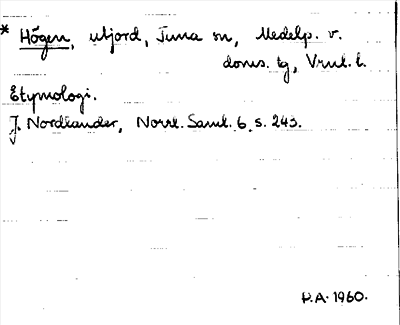 * Högen, utjord, Tuna sn, Medelp. v.
doms. tg, Vrml. l.
Etymologi.
J. Nordlander, Norrl. Saml. 6, s. 243.
P.A. 1960.